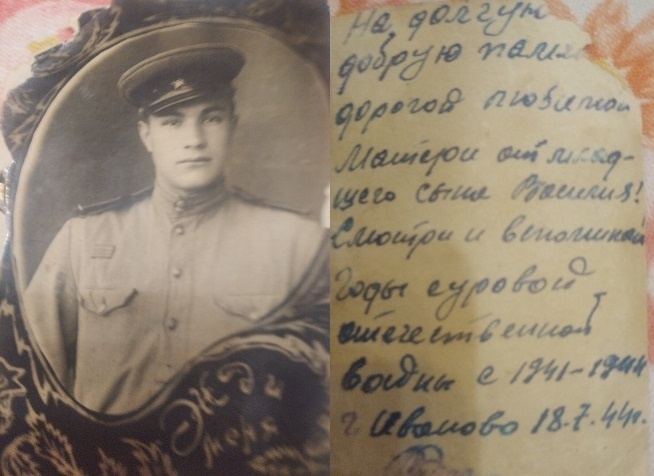 Жди
меня
На долгую
добрую
дорогой любимой
Матери от млад-
щего сына Василия!
Смотри и вспоминай
Годы суровой
отечественной
войны с 1941-1944
г. Иваново 18.7.44г.